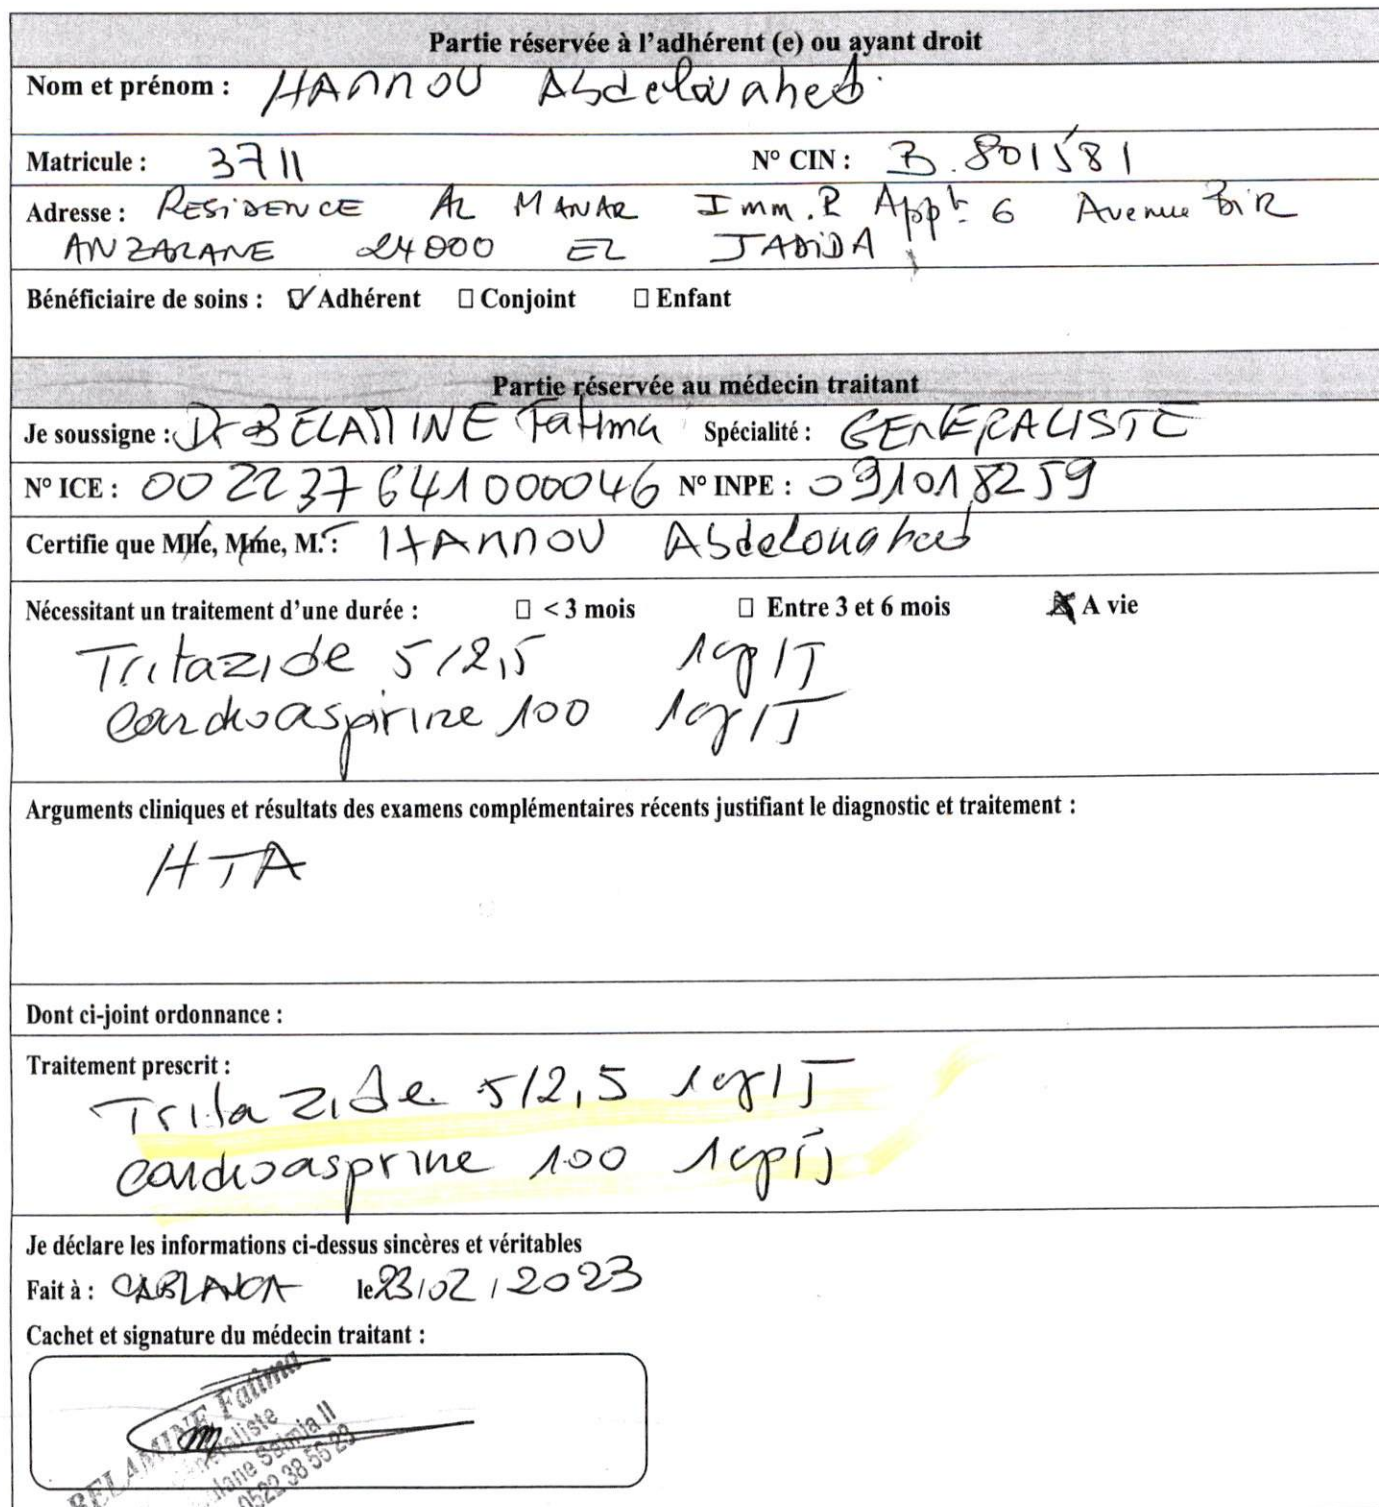 Partie réservée à l'adhérent (e) ou ayant droit
Nom et prénom : HANNOU Abdelouahed
Matricule : 3711 N° CIN : B.801581
Adresse : RESIDENCE AL MANAR Imm. R Appt 6 Avenue BiR
ANZARANE 24000 EL JADIDA
Bénéficiaire de soins : ☑ Adhérent ☐ Conjoint ☐ Enfant
Partie réservée au médecin traitant
Je soussigne : Dr BELAMINE Fatima Spécialité : GENERALISTE
N° ICE : 002237641000046 N° INPE : 091018259
Certifie que Mlle, Mme, M. : HANNOU Abdelouahed
Nécessitant un traitement d'une durée : ☐ < 3 mois ☐ Entre 3 et 6 mois ☒ A vie
Tritazide 5/2,5 1cp/J
Cardioaspirine 100 1cp/J
Arguments cliniques et résultats des examens complémentaires récents justifiant le diagnostic et traitement :
HTA
Dont ci-joint ordonnance :
Traitement prescrit :
Tritazide 5/2,5 1cp/J
Cardioasprine 100 1cp/j
Je déclare les informations ci-dessus sincères et véritables
Fait à : CABLANCA le 23/02/2023
Cachet et signature du médecin traitant :
BELAMINE Fatima
0522 38 56 23